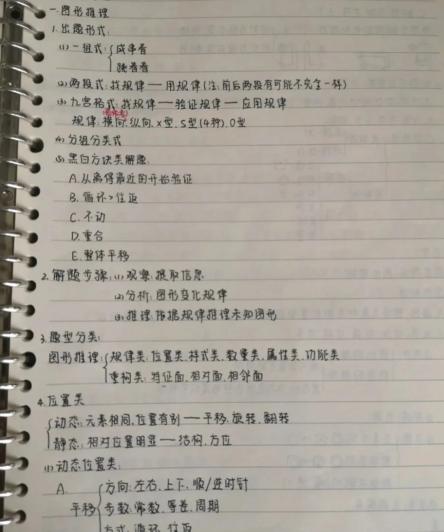 一.图形推理
1.出题形式:
(1)一组式:{成串看
跳着看
(2)两段式:找规律——用规律(注:前后两段有可能不完全一样)
(3)九宫格式:找规律——验证规律——应用规律
规律:横向.纵向.X型.S型(4种).O型
(4)分组分类式
(5)黑白方块类解题:
A.从离得最近的开始验证
B.循环>往返
C.不动
D.重合
E.整体平移
2.解题步骤:(1)观察:提取信息
(2)分析:图形变化规律
(3)推理:依据规律推理未知图形
3.题型分类:
图形推理:{规律类:位置类.样式类.数量类.属性类.功能类
重构类:特征面.相对面.相邻面
4.位置类
{动态:元素相同,位置有别——平移.旋转.翻转
静态:相对位置明显——结构.方位
(1)动态位置类:
A.
平移{方向:左右.上下.顺/逆时针
步数:常数.等差.周期
方式:循环.往返